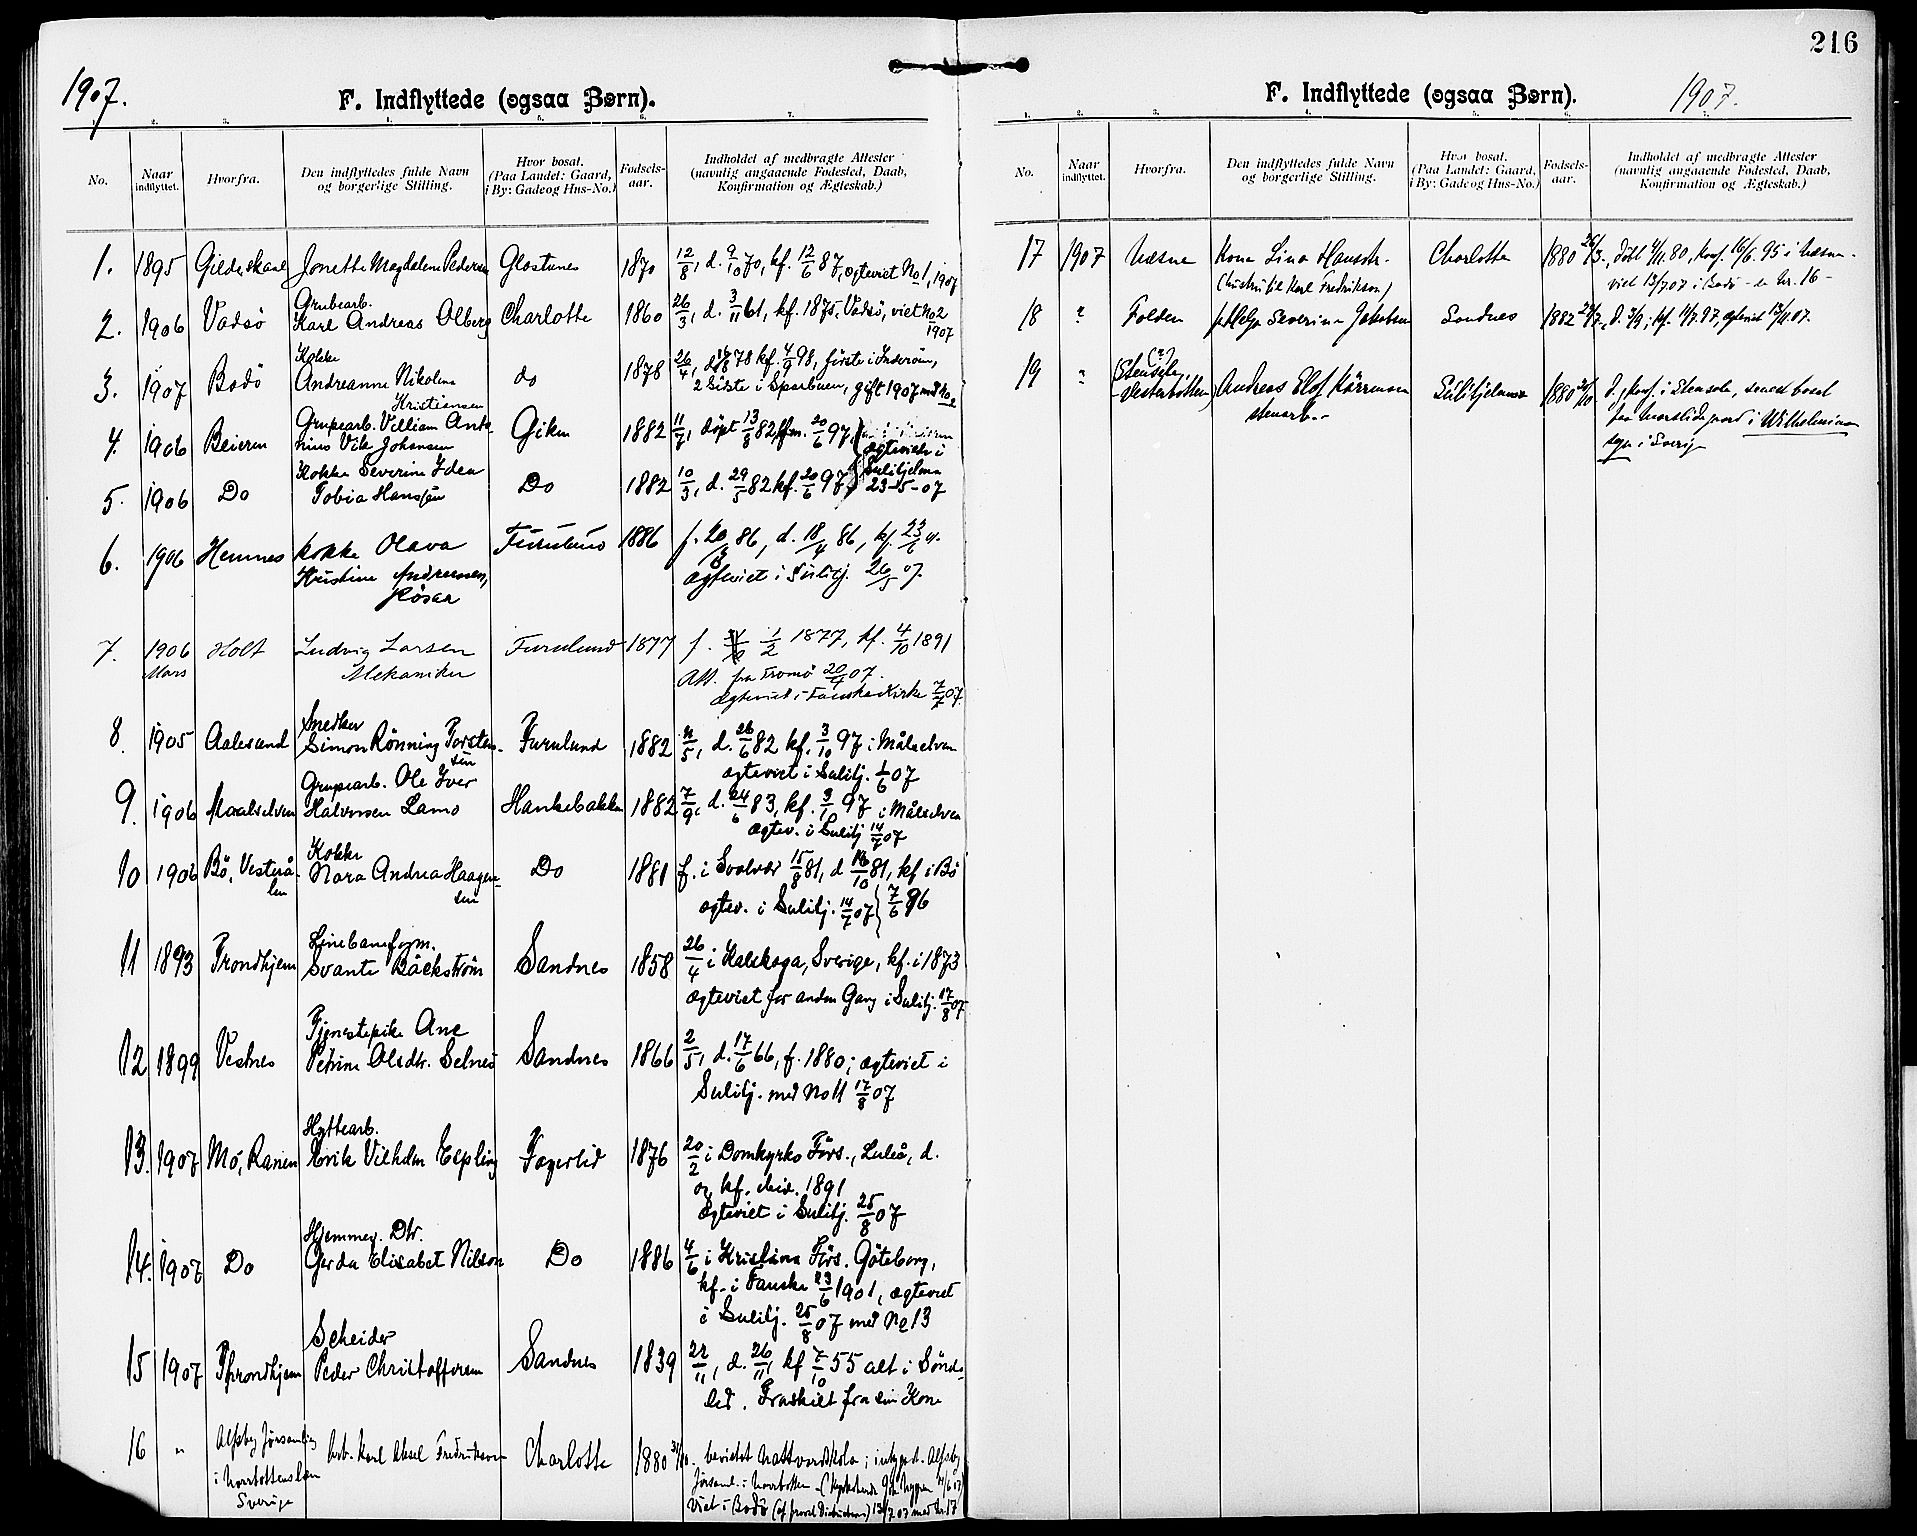 216
1907.
F. Indflyttede (ogsaa Børn).
1. 2. 3. 4. 5. 6. 7.
No.
Naar indflyttet.
Hvorfra.
Den indflyttedes fulde Navn og borgerlige Stilling.
Hvor bosat. (Paa Landet: Gaard, i By: Gade og Hus-No.)
Fødsels-aar.
Indholdet af medbragte Attester (navnlig angaaende Fødested, Daab, Konfirmation og Ægteskab.)
1. 1895 Gildeskaal Jonette Magdalene Pedersen Glastunes 1870 12/8, d. 9/10 70, kf. 12/6 87, ægteviet No 1, 1907
2. 1906 Vadsö Grubearb. Karl Andreas Olberg Charlotte 1860 26/3, d. 3/11 61, kf. 1875, Vadsö, viet No 2
1907
3. 1907 Bodö Kokke Andreanne Nikoline Kristiansen do 1878 26/4, 78 kf. 4/9 98, förste i Inderöen,
2 Sidste i Sparbuen, gift 1907 med No 2
4. 1906 Beieren Grupearb. Villiam Antonius Vik Johansen Giken 1882 11/7, döpt 13/8 82, kfm. 20/6 97
ægteviede i
Sulitjelma
5. 1906 Do Kokke Severine Idea Tobia Hanssen Do 1882 10/3, d. 29/5 82 kf. 20/6 97 23-5-07
6. 1906 Hemnes kokke Olava
Kristine Andreassen,
Røsaa
Furulund 1886 f. 20/3 86, d. 18/4 86, kf. 23/6
ægteviet i Sulitj. 26/5 07.
7. 1906
Mars
Holt Ludvig Larsen
Mekaniker
Furulund 1877 f. 1/2 1877, kf. 4/10 1891
Att. fra Tromsö 20/4 07.
ægteviet i Fauske Kirke 7/7 07.
8. 1905 Aalesund Snedker
Simon Rönning Torstensen
Furulund 1882 5, d. 26/6 82 kf. 3/10 97 i Målselven
ægteviet i Sulitj. 1/6 07
9. 1906 Maalselven Grupearb. Ole Iver
Halvorsen Lamo
Hankebakken 1882 7/9, d. 24/6 83, kf. 97 i Målselven
ægtev. i Sulitj 14/7 07
10 1906 Bö, Vesterålen Kokke
Nora Andrea Haagensen
Do 1881 f. i Svolvær 15/8 81, d 16/10 81, kf i Bö
ægtev. i Sulitj. 14/7 07 } 7/6 96
11 1893 Trondhjem Linebaneform.
Svante Bäckström
Sandnes 1858 26/4 i Kalskoga, Sverige, kf. i 1873
ægteviet for anden Gang i Sulitj. 17/8 07
12 1899 Vestnes Tjenestepike Ane
Petrine Olsdtr. Selnes
Sandnes 1866 2/5, d. 17/6 66, f. 1880; ægteviet i
Sulitj. med No 11 17/8 07
13. 1907 Mo, Ranen Hyttearb.
Erik Vilhelm Espling
Fagerlid 1876 20/2 i Domkyrko Förs., Luleå, d.
og kf. ibid. 1891
Ægteviet i Sulitj. 25/8 07
14. 1907 Do Hjemmev. Dtr.
Gerda Elisabet Nilsson
Do 1886 4/6 i Kristina Förs. Göteborg,
kf. i Fauske 23/6 1901, ægteviet
i Sulitj. 25/8 07 med No 13
15 1907 Throndhjem Scheider
Peder Christoffersen
Sandnes 1839 22/11, d. 26/11, kf 7/10 55 alt i Sönde-
led. Fraskilt fra sin Kone
16 " Alfsby församling
i Norrbottens län
Sverige
Arb. Karl Aksel Fredriksson Charlotte 1880 bevistet Nattvardskola; Alfsby
Församl. i Norrbotten
Viet i Bodö 13/7 07 med Nr. 17
F. Indflyttede (ogsaa Børn).
1907.
1. 2. 3. 4. 5. 6. 7.
No.
Naar indflyttet.
Hvorfra.
Den indflyttedes fulde Navn og borgerlige Stilling.
Hvor bosat. (Paa Landet: Gaard, i By: Gade og Hus-No.)
Fødsels-aar.
Indholdet af medbragte Attester (navnlig angaaende Fødested, Daab, Konfirmation og Ægteskab.)
17 1907 Næsne Kona Lina
(hustru til Karl Fredrikson)
Charlotte 1880 26/3., döbt 4/11. 80, konf. 16/6. 95 i Næsne.
viet 13/7 07 i Bodö - se Nr. 16 -
18 " Folden Helga Severine Jakobsen Sandnes 1882 kf. 11/7. 97, ægteviet 07.
19 " Stensele (?)
Vesterbotten
Andreas Olof Kärrman
stenarb.
Sulitjelma 1880 d. & konf. i Stensele, senest bosat
paa i Wilhelmina
sogn i Sverige